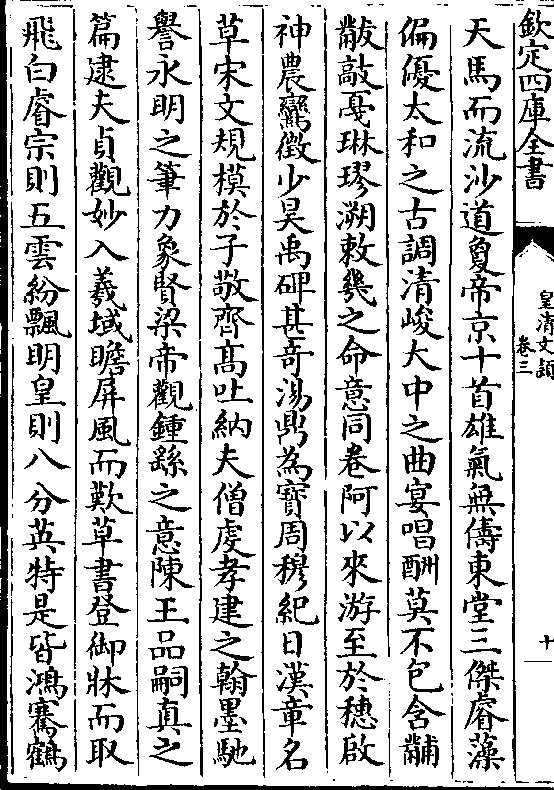 欽定四庫全書
皇清文頴
卷三
十
天馬而流沙道敻帝京十首雄氣無儔東堂三傑睿藻
偏優太和之古調清峻大中之曲宴唱酬莫不包含黼
黻敲戛琳璆溯敕幾之命意同卷阿以來游至於穗啟
神農鸞徵少昊禹碑甚奇湯鼎為寶周穆紀日漢章名
草宋文規模於子敬齊髙吐納夫僧虔孝建之翰墨馳
譽永明之筆力象賢梁帝觀鍾繇之意陳王品嗣真之
篇逮夫貞觀妙入羲域瞻屏風而歎草書登御牀而取
飛白睿宗則五雲紛飄明皇則八分英特是皆鴻騫鶴